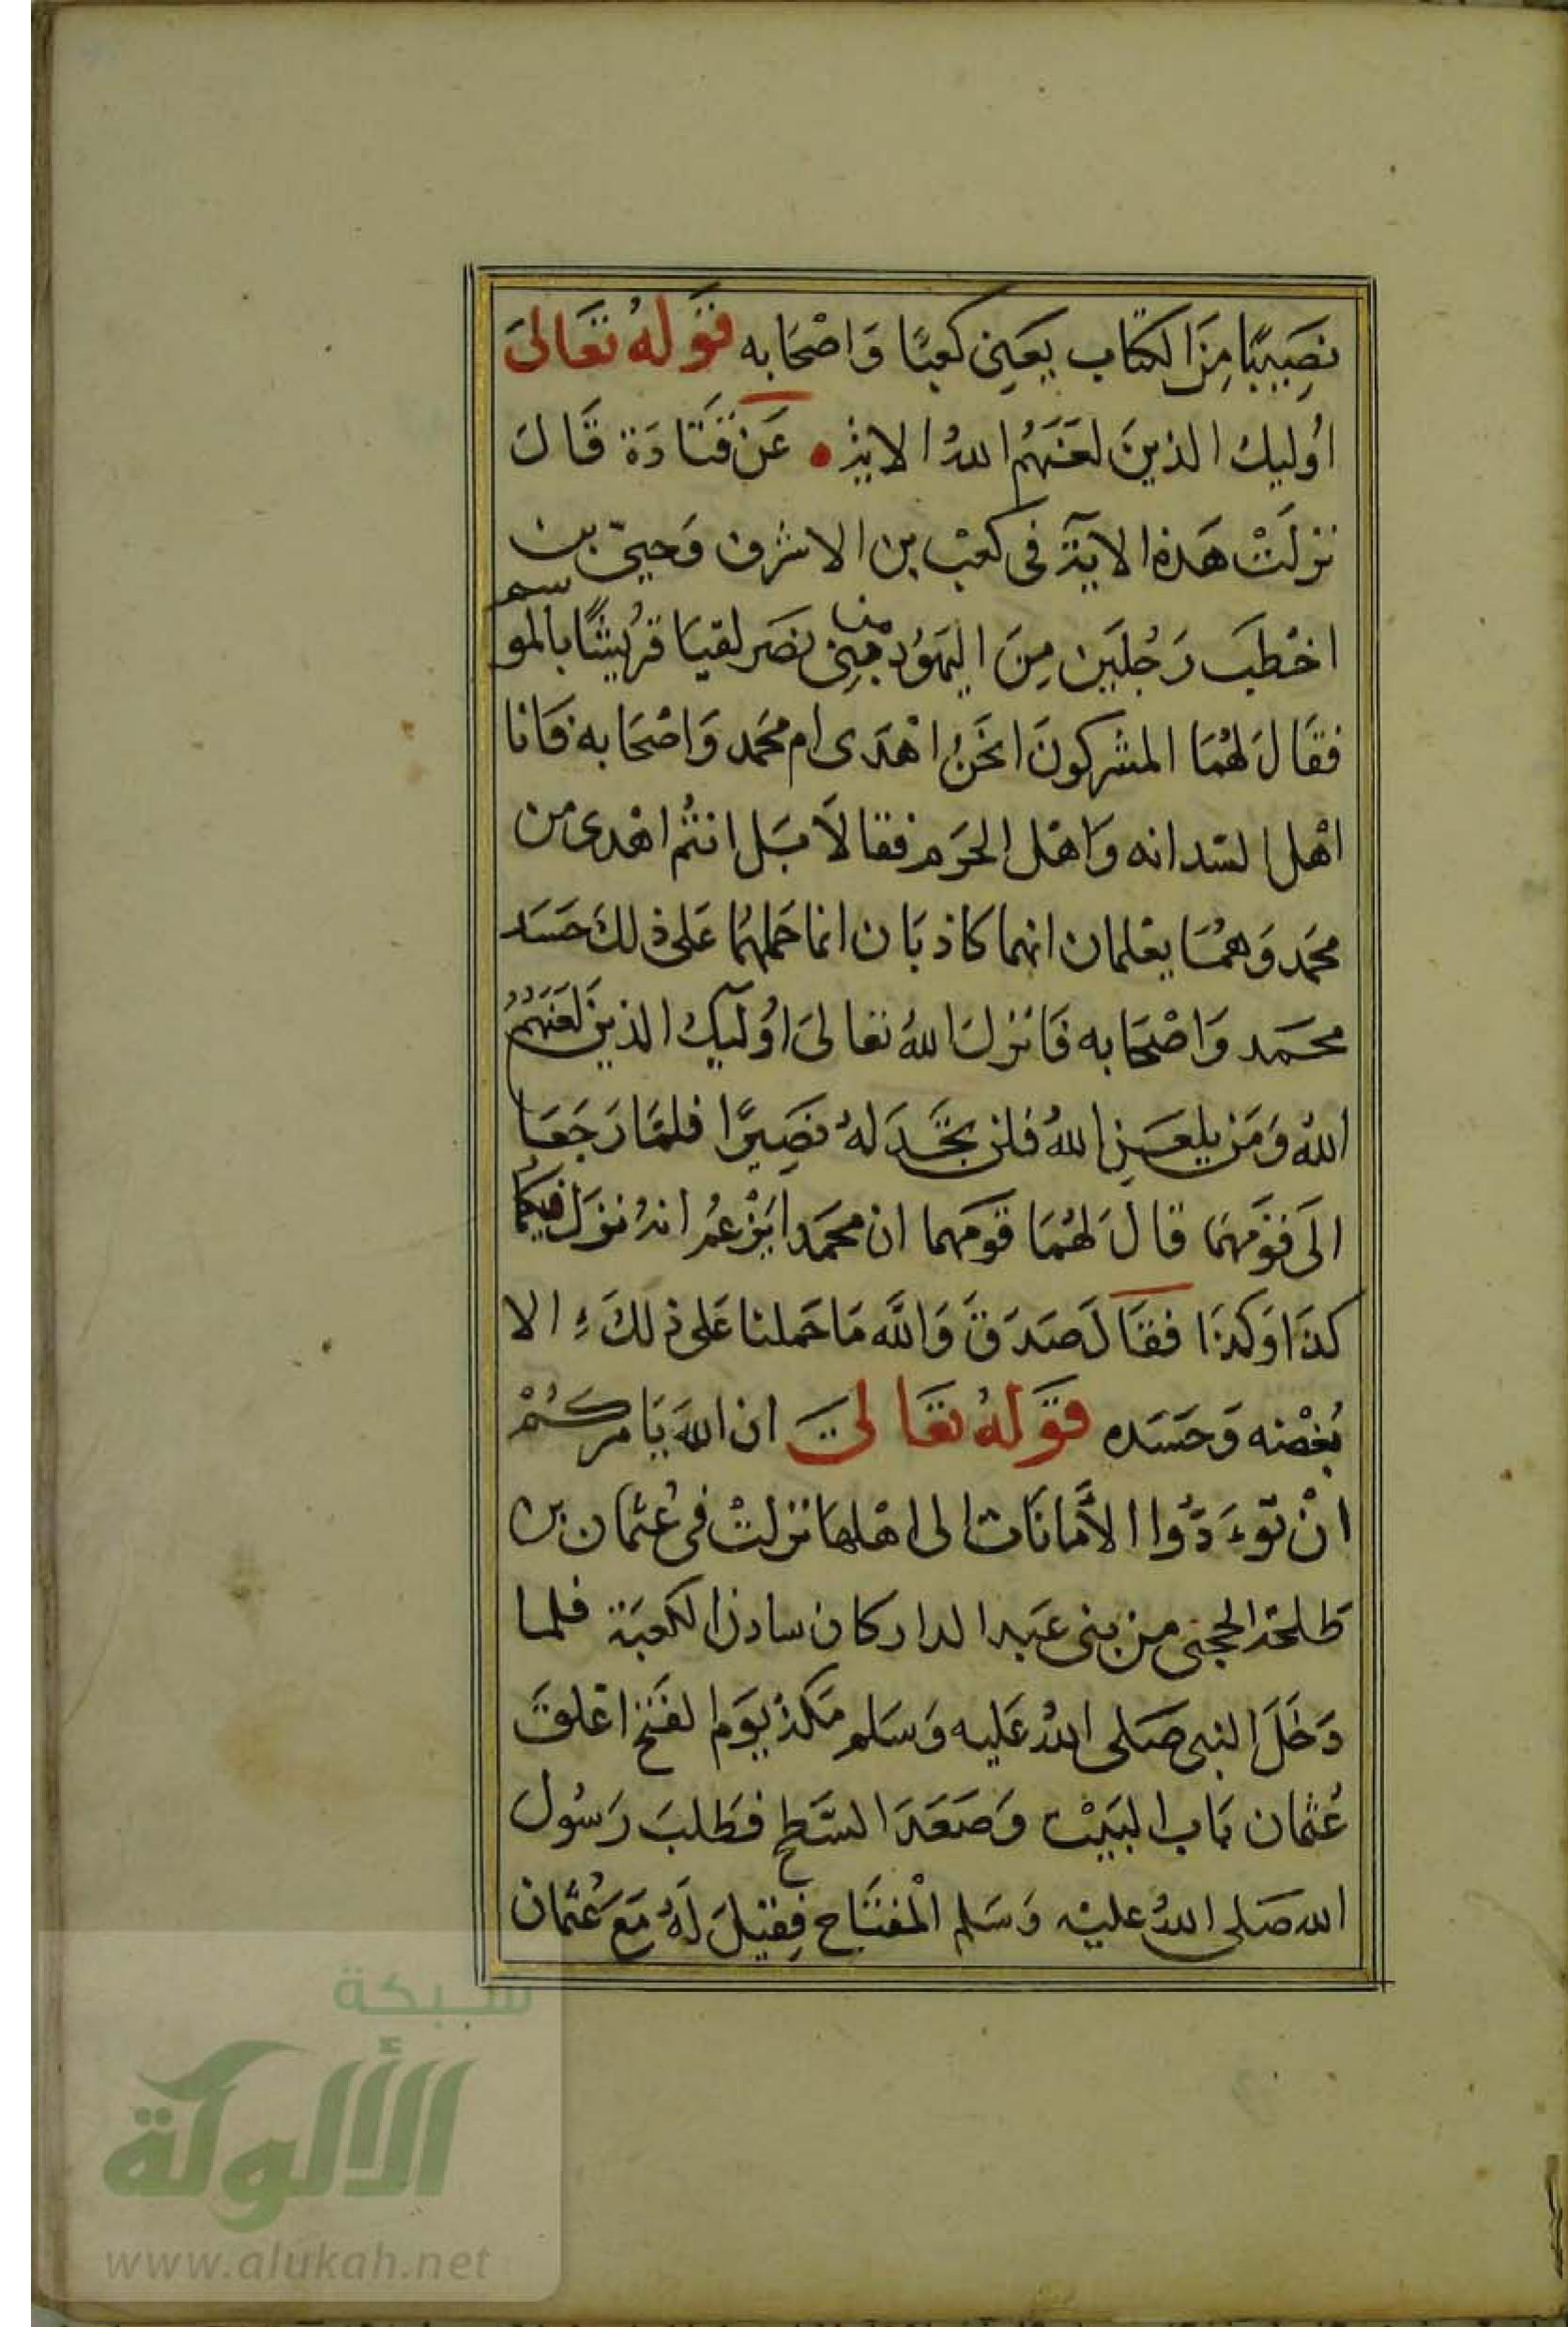 نصَيبًا مِنَ الكتاب يَعَنِى كعبًا وَاصْحَابه قَولهُ تعَالىَ
اُوليك الذينَ لعَنَهُم اللهُ الاية • عَن قَتَادَة قَالَ
نزلَتْ هَذه الايَة فى كعْب بن الاشرف وَحيىّ بن
اخْطبَ رَجُليَن مِنَ اليَهوُد من بَنِى نضَر لقيَا قرُيشًا بالموسم
فقَالَ لهُمَا المشركونَ انحَنُ اهْدَى ام محَمد وَاصْحَابه فَانا
اهْل السَدانه وَاهْل الحَرَم فقالاَ بَل انتُم اهْدى من
محَمد وَهمُا يعْلمان انهما كاذبَان انما حَملهمُا عَلى ذلكَ حَسَد
محَمد وَاصْحَابه فَانزلَ اللهُ تعالىَ اوُليَك الذينَ لعَنَهُمُ
اللهُ وَمَن يلعَنِ اللهُ فلن تجَدَ لهُ نصَيرًا فلمَا رَجَعَا
الَى قوَمهمَا قالَ لهُمَا قَومَهما ان محَمدا يَزْعمُ انهُ نزَل فيكُما
كذَا وَكذَا فقَالَ صَدَقَ وَاللَّه مَا حَملنا عَلى ذلكَ الا
بُغضْه وَحَسَده قَولهُ تعَالىَ ان اللهَ يَامركُمْ
انْ توءَدّوُا الاَمَانَات الى اهْلها نزلتْ فى عُثمان بن
طَلحَة الحجبى من بنى عَبد الدار كان سادن الكعبَة فلما
دَخَلَ النبى صَلى اللهُ عَليه وَسَلم مَكة يَوم الفَتح اغلقَ
عُثمان بَاب البَيْت وَصَعَدَ السَطح فطَلبَ رَسُولَ
الله صَلى اللهُ عليْه وَسَلم المْفتَاح فِقيلَ لَهُ مَعَ عُثمان
شبكة
الألوكة
www.alukah.net